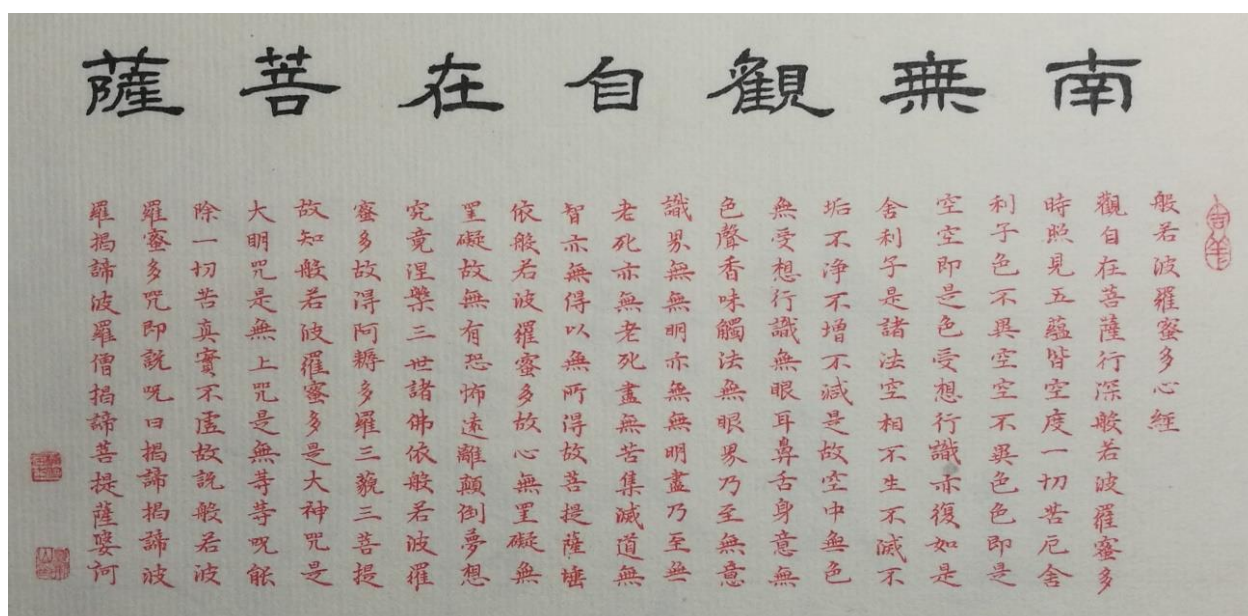 南無觀自在菩薩
吉羊
般若波羅蜜多心經
觀自在菩薩行深般若波羅蜜多
時照見五蘊皆空度一切苦厄舍
利子色不異空空不異色色即是
空空即是色受想行識亦復如是
舍利子是諸法空相不生不滅不
垢不浄不增不減是故空中無色
無受想行識無眼耳鼻舌身意無
色聲香味觸法無眼界乃至無意
識界無無明亦無無明盡乃至無
老死亦無老死盡無苦集滅道無
智亦無得以無所得故菩提薩埵
依般若波羅蜜多故心無罣礙無
罣礙故無有恐怖遠離顛倒夢想
究竟涅槃三世諸佛依般若波羅
蜜多故得阿耨多羅三藐三菩提
故知般若波羅蜜多是大神咒是
大明咒是無上咒是無等等呪能
除一切苦真實不虛故說般若波
羅蜜多咒即說呪曰揭諦揭諦波
羅揭諦波羅僧揭諦菩提薩婆訶